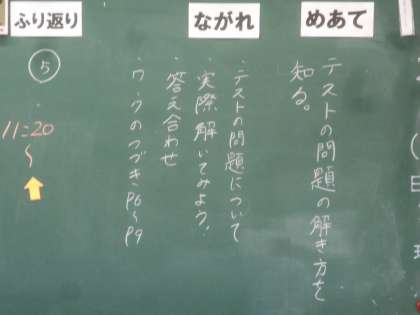 めあて
テストの問題の解き方を
知る。
ながれ
・テストの問題について
・実際解いてみよう!
・答え合わせ
・ワークのつづきP6～P9
ふり返り
⑤
11:20
～